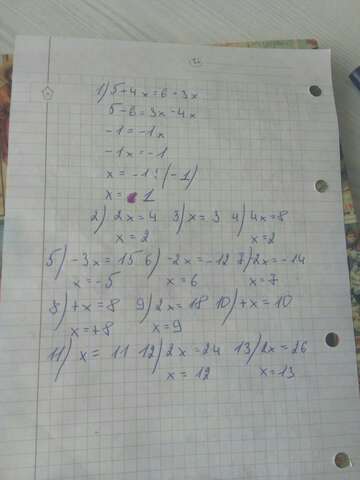 1) 5+4x=6+3x
5-6=3x-4x
-1=-1x
-1x=-1
x=-1:(-1)
x=1
2) 2x=4 3) x=3 4) 4x=8
x=2 x=2
5) -3x=15 6) -2x=-12 7) 2x=-14
x=-5 x=6 x=7
8) +x=8 9) 2x=18 10) +x=10
x=+8 x=9
11) x=11 12) 2x=24 13) 2x=26
x=12 x=13